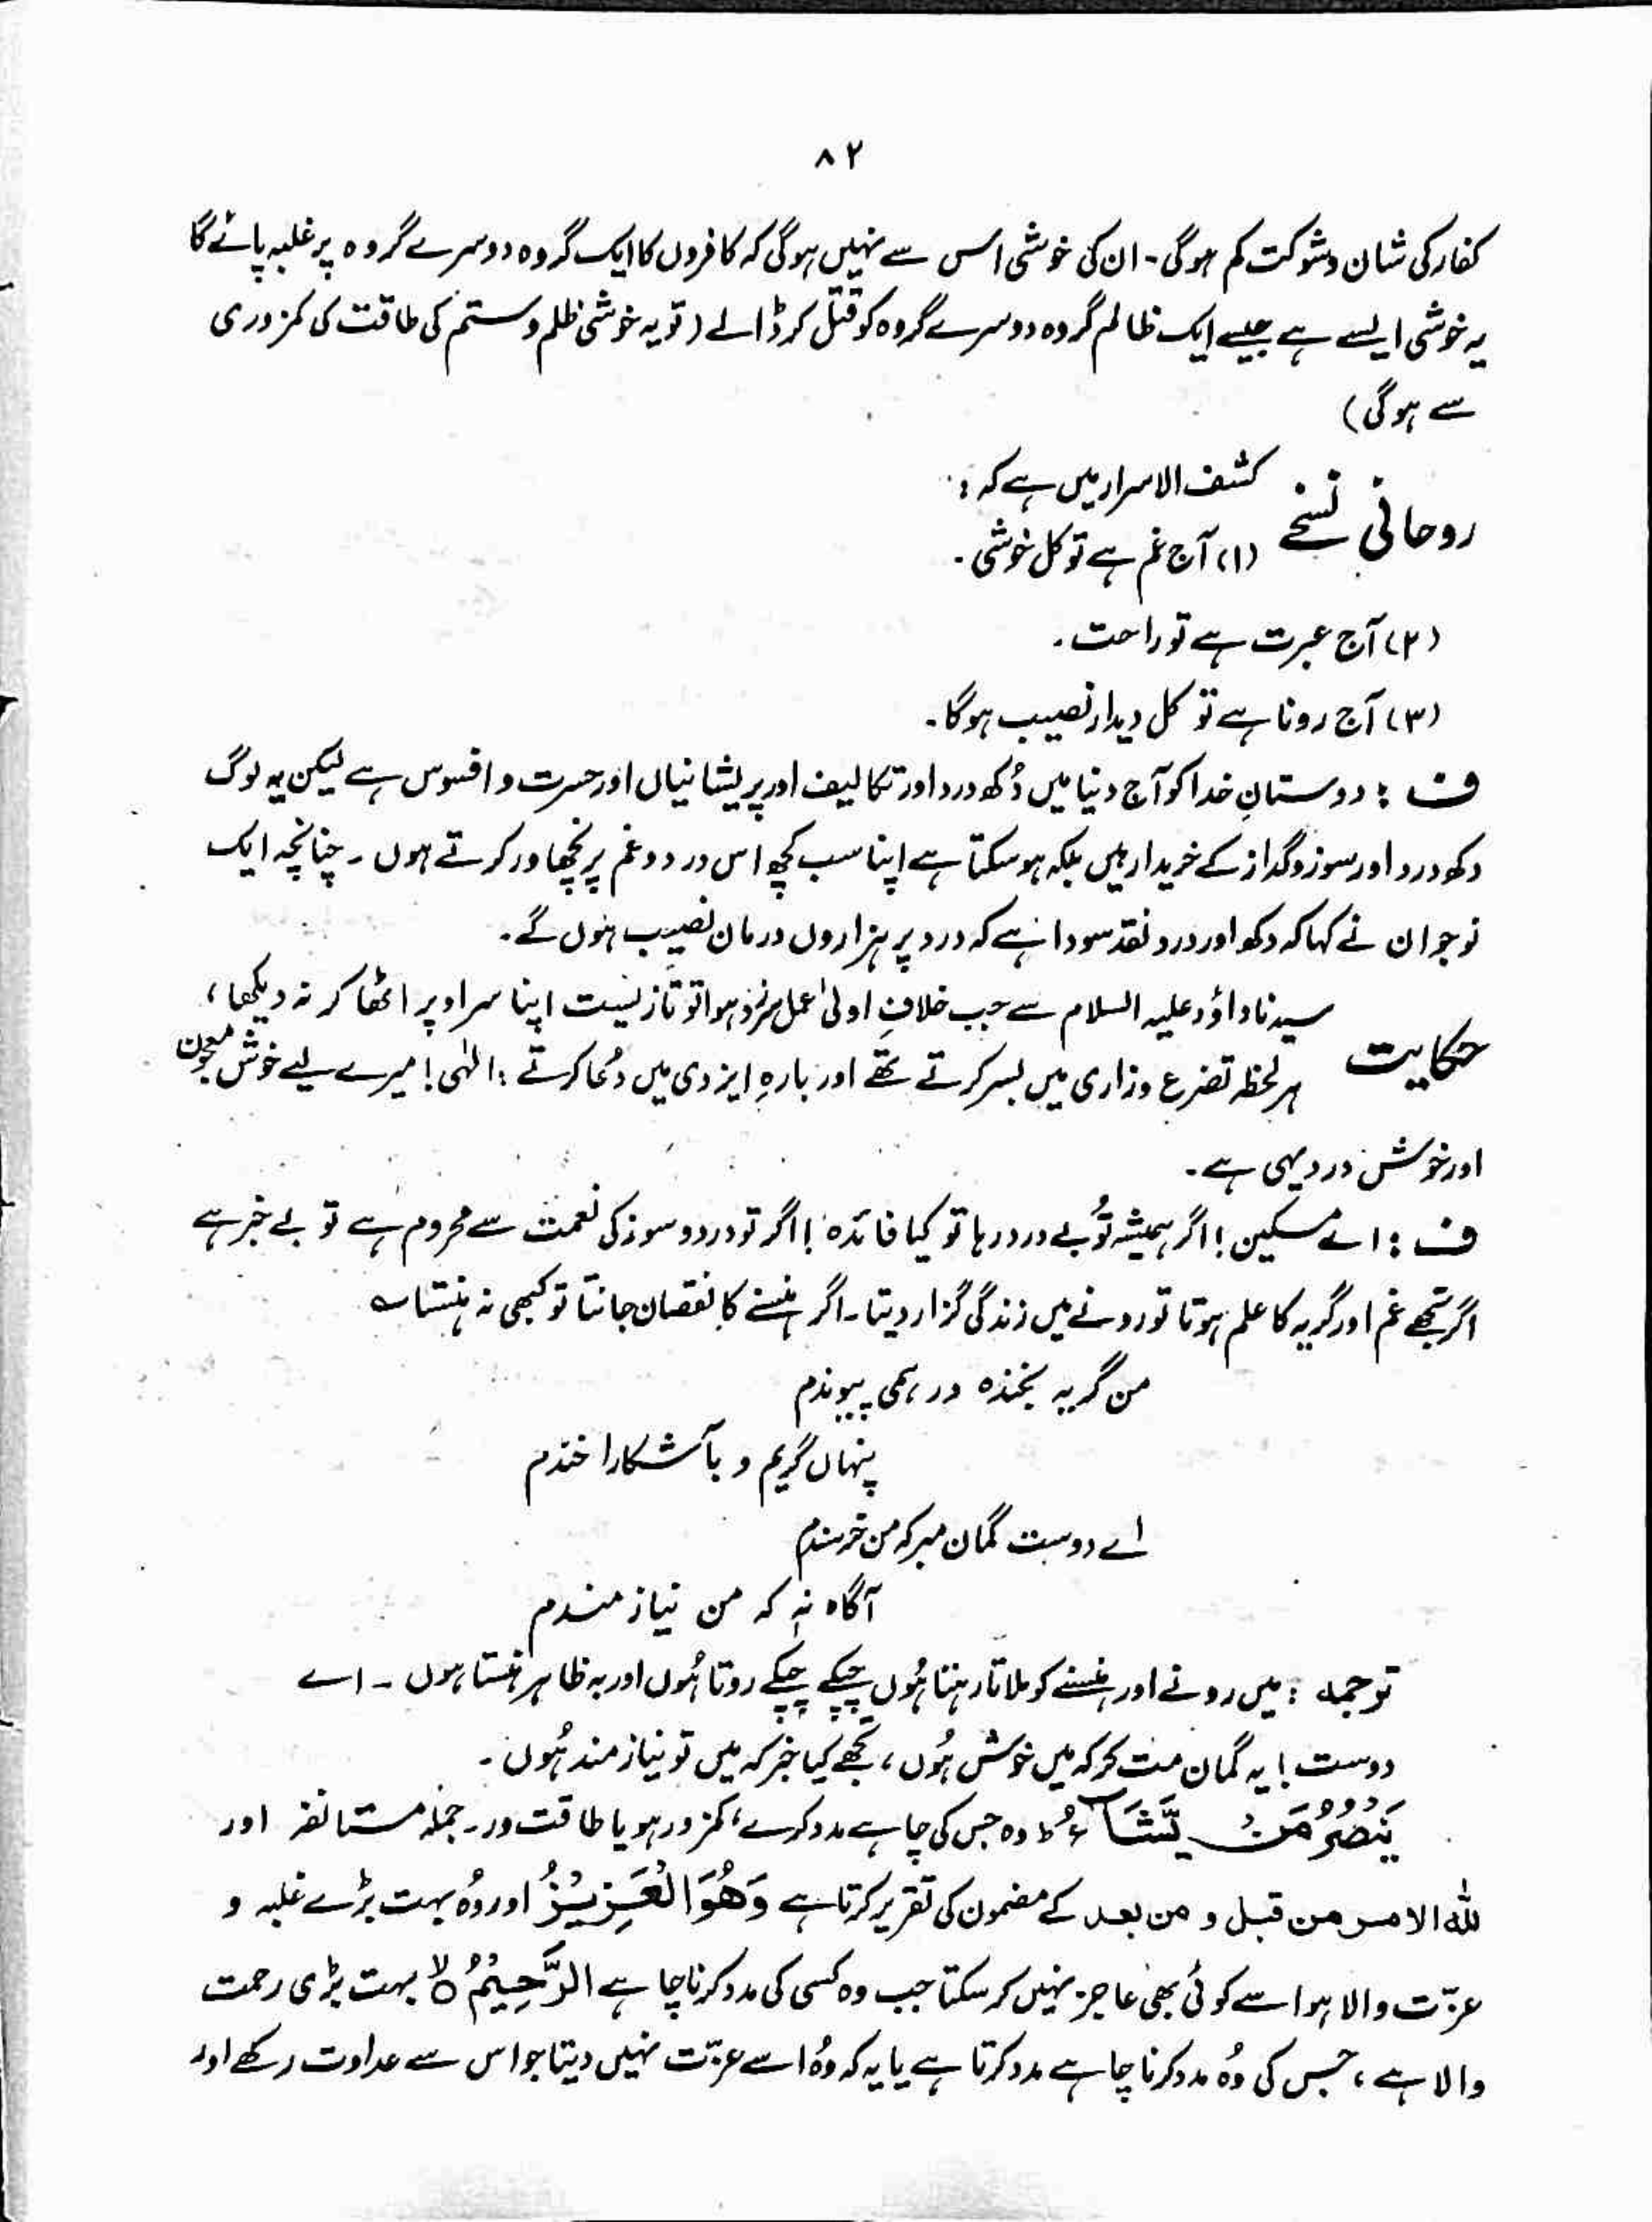 ۸۲
کفار کی شان و شوکت کم ہوگی۔ ان کی خوشی اس سے نہیں ہوگی کہ کافروں کا ایک گروہ دوسرے گروہ پر غلبہ پائے گا
یہ خوشی ایسے ہے جیسے ایک ظالم گروہ دوسرے گروہ کو قتل کر ڈالے (تو یہ خوشی ظلم و ستم کی طاقت کی کمزوری
سے ہوگی)
روحانی نسخے
کشف الاسرار میں ہے کہ :
(۱) آج غم ہے تو کل خوشی۔
(۲) آج عبرت ہے تو راحت۔
(۳) آج رونا ہے تو کل دیدار نصیب ہوگا۔
ف : دوستانِ خدا کو آج دنیا میں دُکھ درد اور تکالیف اور پریشانیاں اور حسرت و افسوس ہے لیکن یہ لوگ
دکھ درد اور سوز و گداز کے خریدار ہیں بلکہ ہو سکتا ہے اپنا سب کچھ اس درد و غم پر نچھاور کرتے ہوں۔ چنانچہ ایک
نوجوان نے کہا کہ دکھ اور درد نقد سودا ہے کہ درد پر ہزاروں درمان نصیب ہوں گے۔
حکایت
سیدنا داؤد علیہ السلام سے جب خلافِ اولیٰ عمل سرزد ہوا تو تازیست اپنا سر اوپر اٹھا کر نہ دیکھا،
ہر لحظہ تضرع و زاری میں بسر کرتے تھے اور بارہِ ایزدی میں دُعا کرتے : الٰہی! میرے لیے خوش معجون
اور خوش درد یہی ہے۔
ف : اے مسکین! اگر ہمیشہ تُو بے درد رہا تو کیا فائدہ! اگر تو درد و سوز کی نعمت سے محروم ہے تو بے خبر ہے
اگر تجھے غم اور گریہ کا علم ہوتا تو رونے میں زندگی گزار دیتا۔ اگر ہنسنے کا نقصان جانتا تو کبھی نہ ہنستا ؎
من گریہ بخندہ در ہمی پیوندم
پنہاں گریم و بآشکارا خندم
اے دوست گمان مبر کہ من خرسندم
آگاہ نۂ کہ من نیاز مندم
ترجمہ : میں رونے اور ہنسنے کو ملاتا رہتا ہُوں چپکے چپکے روتا ہُوں اور بہ ظاہر ہنستا ہوں۔ اے
دوست! یہ گمان مت کر کہ میں خوش ہُوں، تجھے کیا خبر کہ میں تو نیازمند ہُوں۔
یَنْصُرُ مَنْ یَّشَآءُ ؕ وہ جس کی چاہے مدد کرے، کمزور ہو یا طاقت ور۔ جملہ مستانفہ اور
للّٰہ الامر من قبل و من بعد کے مضمون کی تقریر کرتا ہے وَھُوَ الْعَزِیْزُ اور وُہ بہت بڑے غلبہ و
عزّت والا ہوا سے کوئی بھی عاجز نہیں کر سکتا جب وہ کسی کی مدد کرنا چاہے الرَّحِیْمُ ۙ بہت بڑی رحمت
والا ہے، جس کی وُہ مدد کرنا چاہے مدد کرتا ہے یا یہ کہ وُہ اسے عزّت نہیں دیتا جو اس سے عداوت رکھے اور